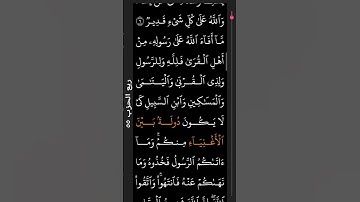 وَٱللَّهُ عَلَىٰ كُلِّ شَىْءٍ قَدِيرٌ ٦
مَّآ أَفَآءَ ٱللَّهُ عَلَىٰ رَسُولِهِۦ مِنْ
أَهْلِ ٱلْقُرَىٰ فَلِلَّهِ وَلِلرَّسُولِ
وَلِذِى ٱلْقُرْبَىٰ وَٱلْيَتَـٰمَىٰ
وَٱلْمَسَـٰكِينِ وَٱبْنِ ٱلسَّبِيلِ كَىْ
لَا يَكُونَ دُولَةًۢ بَيْنَ
ٱلْأَغْنِيَآءِ مِنكُمْ ۚ وَمَآ
ءَاتَىٰكُمُ ٱلرَّسُولُ فَخُذُوهُ وَمَا
نَهَىٰكُمْ عَنْهُ فَٱنتَهُوا۟ ۚ وَٱتَّقُوا۟
ربع الحزب ٥٥